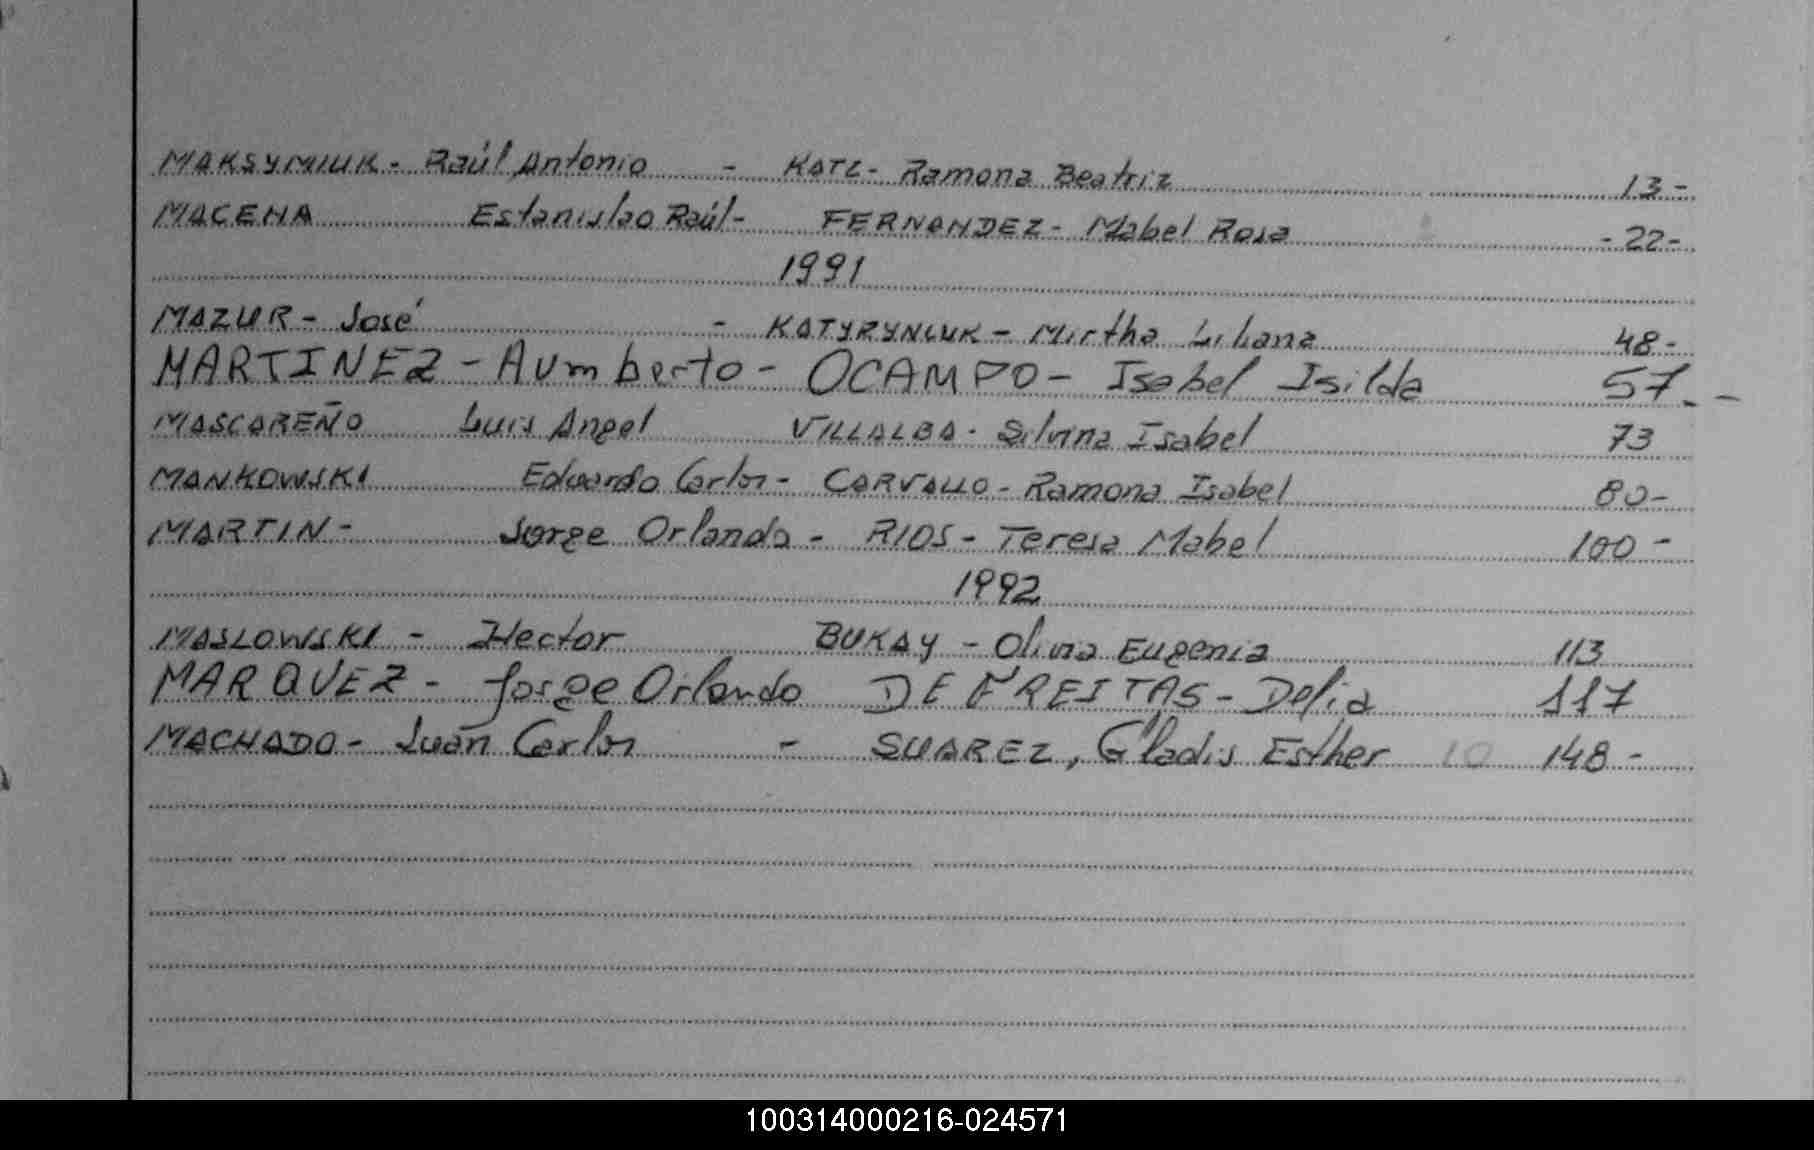 MAKSYMIUK - Raúl Antonio - KATZ - Ramona Beatriz 13 -
MACENA Estanislao Raúl - FERNANDEZ - Mabel Rosa - 22 -
1991
MAZUR - José - KATYRYNIUK - Mirtha Liliana 48 -
MARTINEZ - Aumberto - OCAMPO - Isabel Isilda 57. -
MASCAREÑO Luis Angel VILLALBA - Silvina Isabel 73
MANKOWSKI Eduardo Carlos - CARVALLO - Ramona Isabel 80 -
MARTIN - Jorge Orlando - RIOS - Teresa Mabel 100 -
1992
MASLOWSKI - Hector BUKAY - Olivia Eugenia 113
MARQUEZ - Jorge Orlando DE FREITAS - Delia 117
MACHADO - Juan Carlos - SUAREZ, Gladis Esther 10 148 -
100314000216-024571